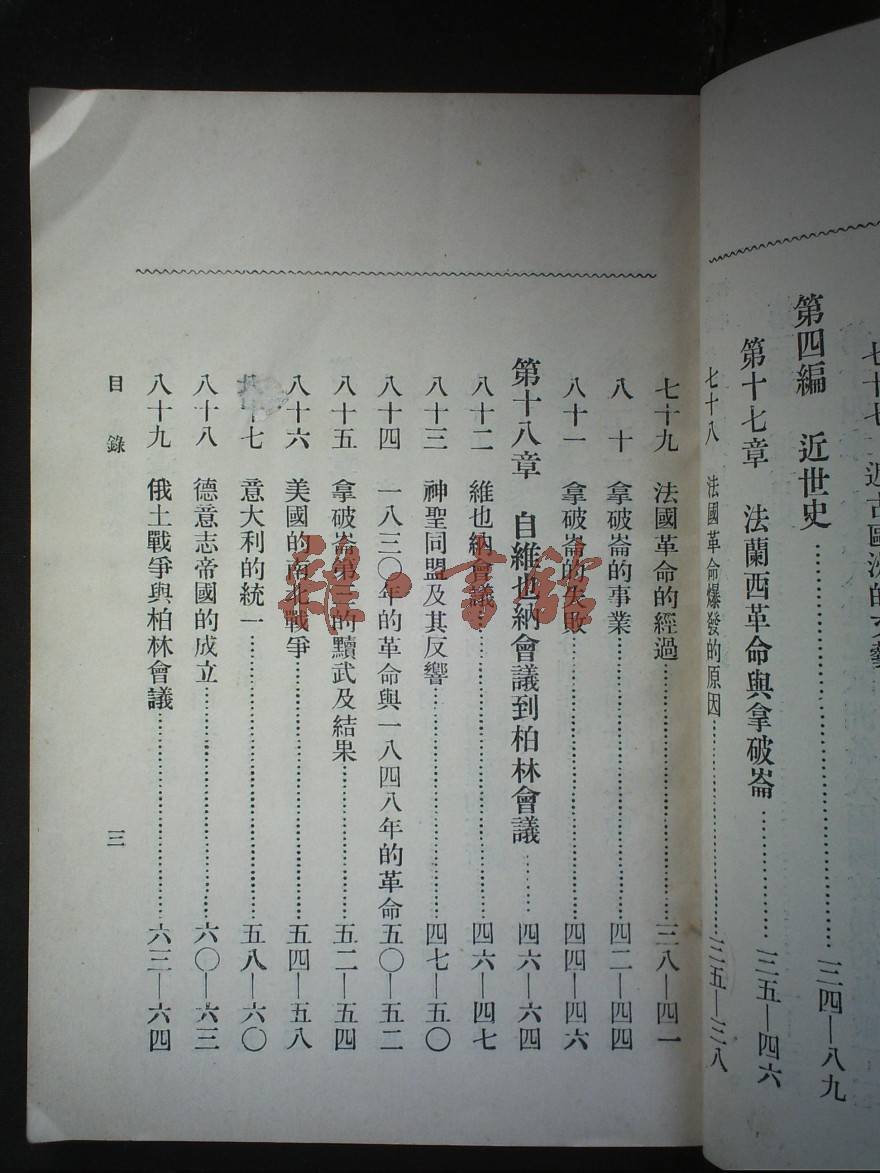 七十七 近古歐洲的文藝
第四編 近世史 三四—八九
第十七章 法蘭西革命與拿破崙 三五—四六
七十八 法國革命爆發的原因 三五—三八
七十九 法國革命的經過 三八—四一
八十 拿破崙的事業 四二—四四
八十一 拿破崙的失敗 四四—四六
第十八章 自維也納會議到柏林會議 四六—六四
八十二 維也納會議 四六—四七
八十三 神聖同盟及其反響 四七—五〇
八十四 一八三〇年的革命與一八四八年的革命 五〇—五二
八十五 拿破崙第三的黷武及結果 五二—五四
八十六 美國的南北戰爭 五四—五八
八十七 意大利的統一 五八—六〇
八十八 德意志帝國的成立 六〇—六三
八十九 俄土戰爭與柏林會議 六三—六四
目錄 三